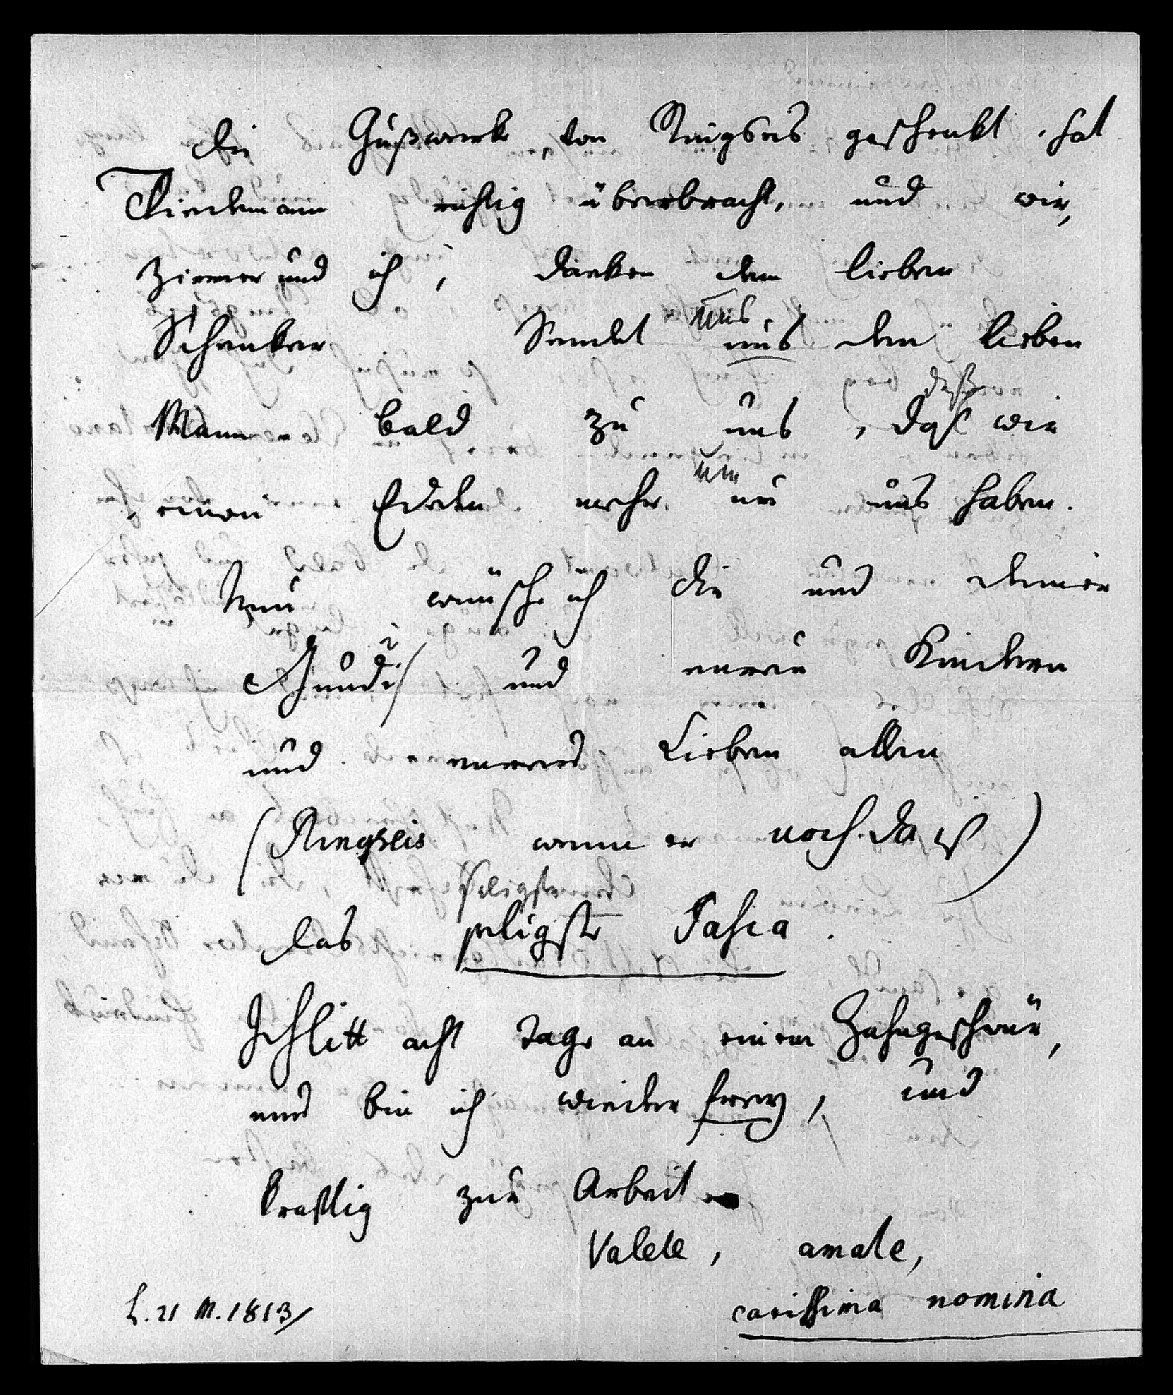 die Gußwerk von Ringseis geschenkt hat
Tiedemann richtig überbracht, und wir,
Zimmer und ich, danken dem lieben
Schenker Sendet uns
uns den lieben
Mann bald zu uns, daß
daß wir
einen Edelen mehr um
um uns haben.
Nun wünsche ich die und deiner
und euren Kindern
und eueren Lieben allen
(Ringseis wenn er noch da ist)
das seligste
seligste Pascha.
Ich litt acht Tage an einem Zahngeschwür,
nun bin ich wieder frey, und
kräftig zur Arbeit
Valete, amate,
carissima nomina
L. 21 M. 1813